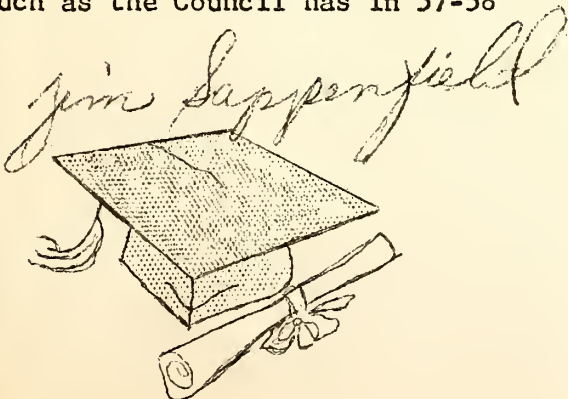 uch as the Council has in 57-58
Jim Sappenfield